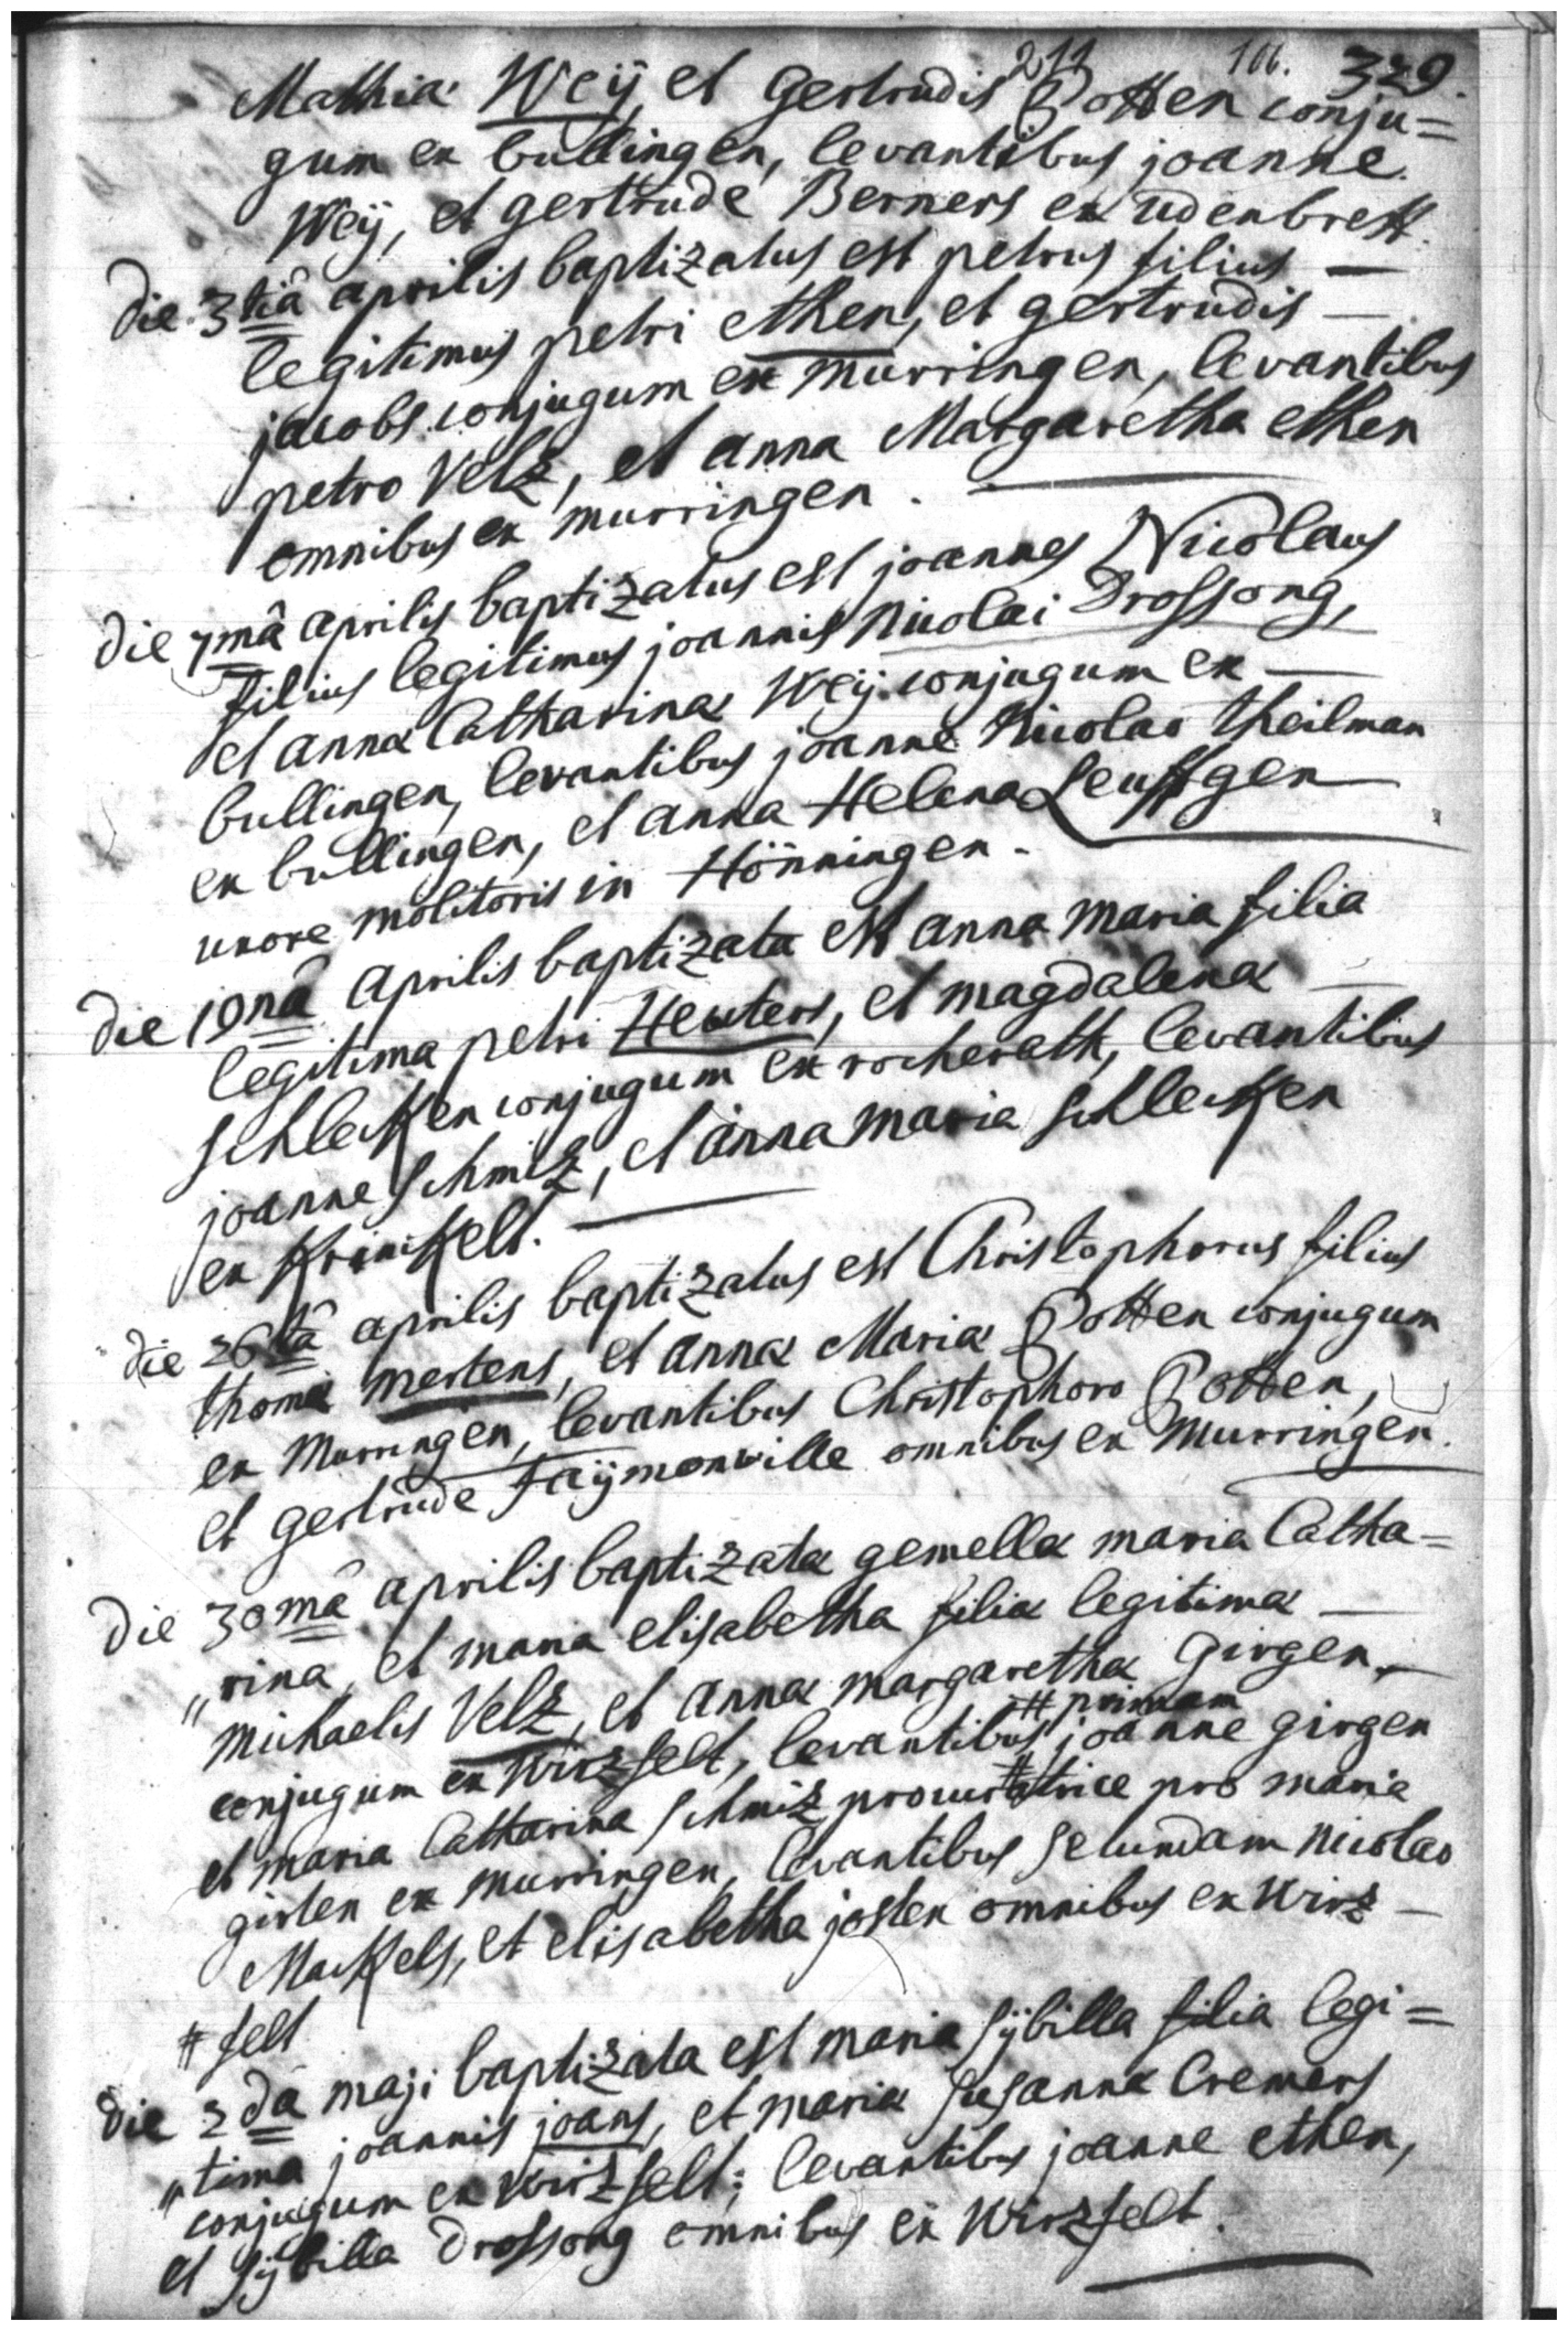 211 106. 329.
Mathiæ Weÿ, et gertrudis Potten conju=
gum ex bullingen, levantibus joanne
Weÿ, et gertrude Berners ex udenbrett.
die 3tiâ aprilis baptizatus est petrus filius —
legitimus petri ethen, et gertrudis —
jacobs conjugum ex murringen, levantibus
petro Velz, et anna Margaretha ethen
omnibus ex murringen.
die 7mâ aprilis baptizatus est joannes Nicolaus
filius legitimus joannis Nicolai Drossong,
et annæ Catharinæ Weÿ conjugum ex —
bullingen, levantibus joanne Nicolao theilman
ex bullingen, et anna Helena Leuffgen
uxore molitoris in Hönningen.
die 19nâ aprilis baptizata est anna maria filia
legitima petri Heuters, et magdalenæ —
schlecken conjugum ex rocherath, levantibus
joanne schmiz, et anna maria schlecken
ex krinkelt.
die 26tâ aprilis baptizatus est Christophorus filius
thomæ mertens, et annæ Mariæ Potten conjugum
ex Murringen, levantibus Christophoro Potten,
et gertrude faÿmonville omnibus ex murringen.
die 30mâ aprilis baptizatæ gemellæ maria Catha=
"rina, et maria elisabetha filiæ legitimæ —
michaelis Velz, et annæ margarethæ girgen —
# primam
conjugum ex Wirzfelt, levantibus # joanne girgen
et maria Catharina schmiz procuratrice pro maria
girten ex murringen, levantibus secundam nicolao
Mackels, et elisabetha josten omnibus ex Wirz —
# felt
die 2dâ maji baptizata est maria sÿbilla filia legi=
"tima joannis joans, et mariæ susannæ Cremers
conjugum ex wirzfelt; levantibus joanne ethen,
et sÿbilla Drossong omnibus ex Wirzfelt.